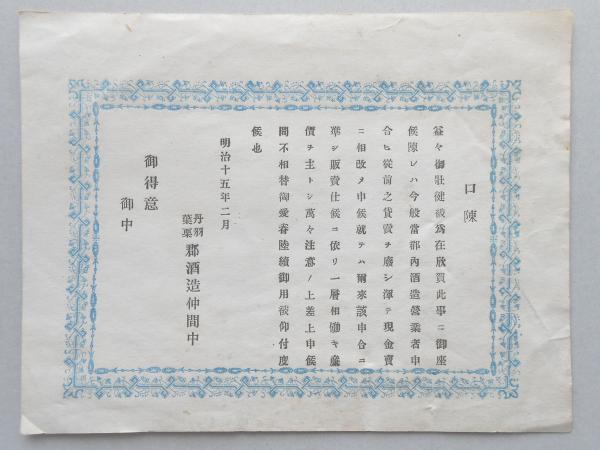 口陳
益々御壮健被為在欣賀此事ニ御座
候陳レハ今般当郡内酒造営業者申
合セ従前之貸売ヲ廃シ渾テ現金売
ニ相改メ申候就テハ爾来該申合ニ
準シ販売仕候ニ依リ一層相働キ廉
価ヲ主トシ萬々注意ノ上差上申候
間不相替御愛眷陸続御用被仰付度
候也
明治十五年二月
丹羽
葉栗
郡酒造仲間中
御得意
御中